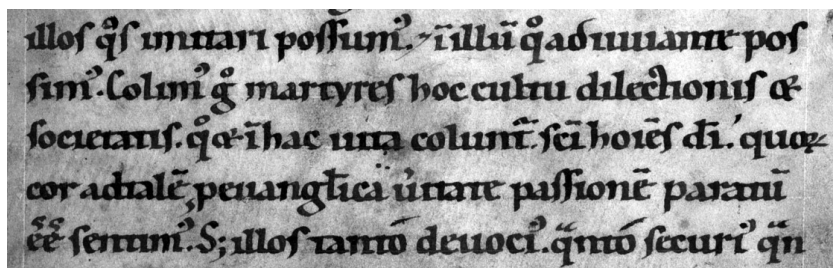 illoſ qͦſ imitari poſſumꝰ. ⁊ ī illū qͦ adiuuante poſ
ſimꝰ. Colimꝰ gͦ martyreſ hoc cultu dilectioniſ &
ſocietatiſ. qͦ & ī hac uita colunt᷑. ſc̄i hoıēſ dı̄. quoꝝ
cor ad talē ꝓ euanglica ueritate paſſionē paratū
eē̄ ſentimꝰ. S; illoſ tantó deuociꝰ. qᵃntó ſecuriꝰ qᵃn